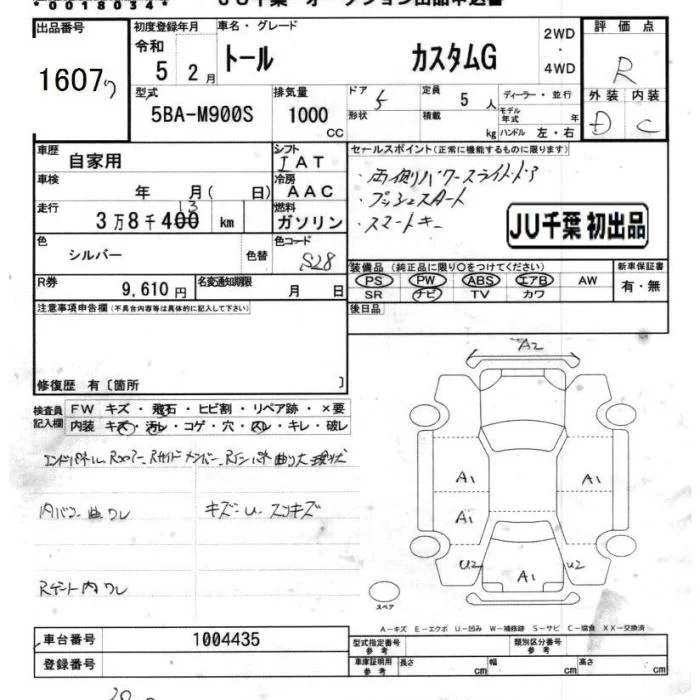 *0018034* JU千葉 オークション出品申込書
出品番号 初度登録年月 車名・グレード 2WD ・ 4WD 評価点
1607 令和 5年 2月 トール カスタムG R
型式 排気量 ドア 5 定員 5人 ディーラー・並行 外装 内装
5BA-M900S 1000 CC 形状 積載 kg モデル年式 年 ハンドル 左・右 D C
車歴 自家用 シフト IAT セールスポイント(正常に機能するものに限ります)
車検 年 月( 日) 冷房 AAC ・両側パワースライドドア
走行 3万8千400 13 km 燃料 ガソリン ・プッシュスタート
・スマートキー
JU千葉 初出品
色 シルバー 色替 色コード S28
装備品(純正品に限り〇をつけてください) 新車保証書
R券 9,610円 名変通知期限 月 日 PS PW ABS エアB AW 有・無
SR ナビ TV カワ
注意事項申告欄(不具合内容等は具体的に記入して下さい) 後日品
修復歴 有〔箇所 〕
検査員記入欄 FW キズ・飛石・ヒビ割・リペア跡・×要
内装 キズ・汚レ・コゲ・穴・スレ・キレ・破レ
エンドパネル Rフロアー Rサイドメンバー
内バン 曲 ワレ キズ U スリキズ
Rゲート内ワレ
A2
A1 A1
A1
U2 A1 U2
スペア
A-キズ E-エクボ U-凹み W-補修跡 S-サビ C-腐食 XX-交換済
車台番号 1004435 型式指定番号 参考 類別区分番号 参考
登録番号 車庫証明用 参考 長さ cm 幅 cm 高さ cm